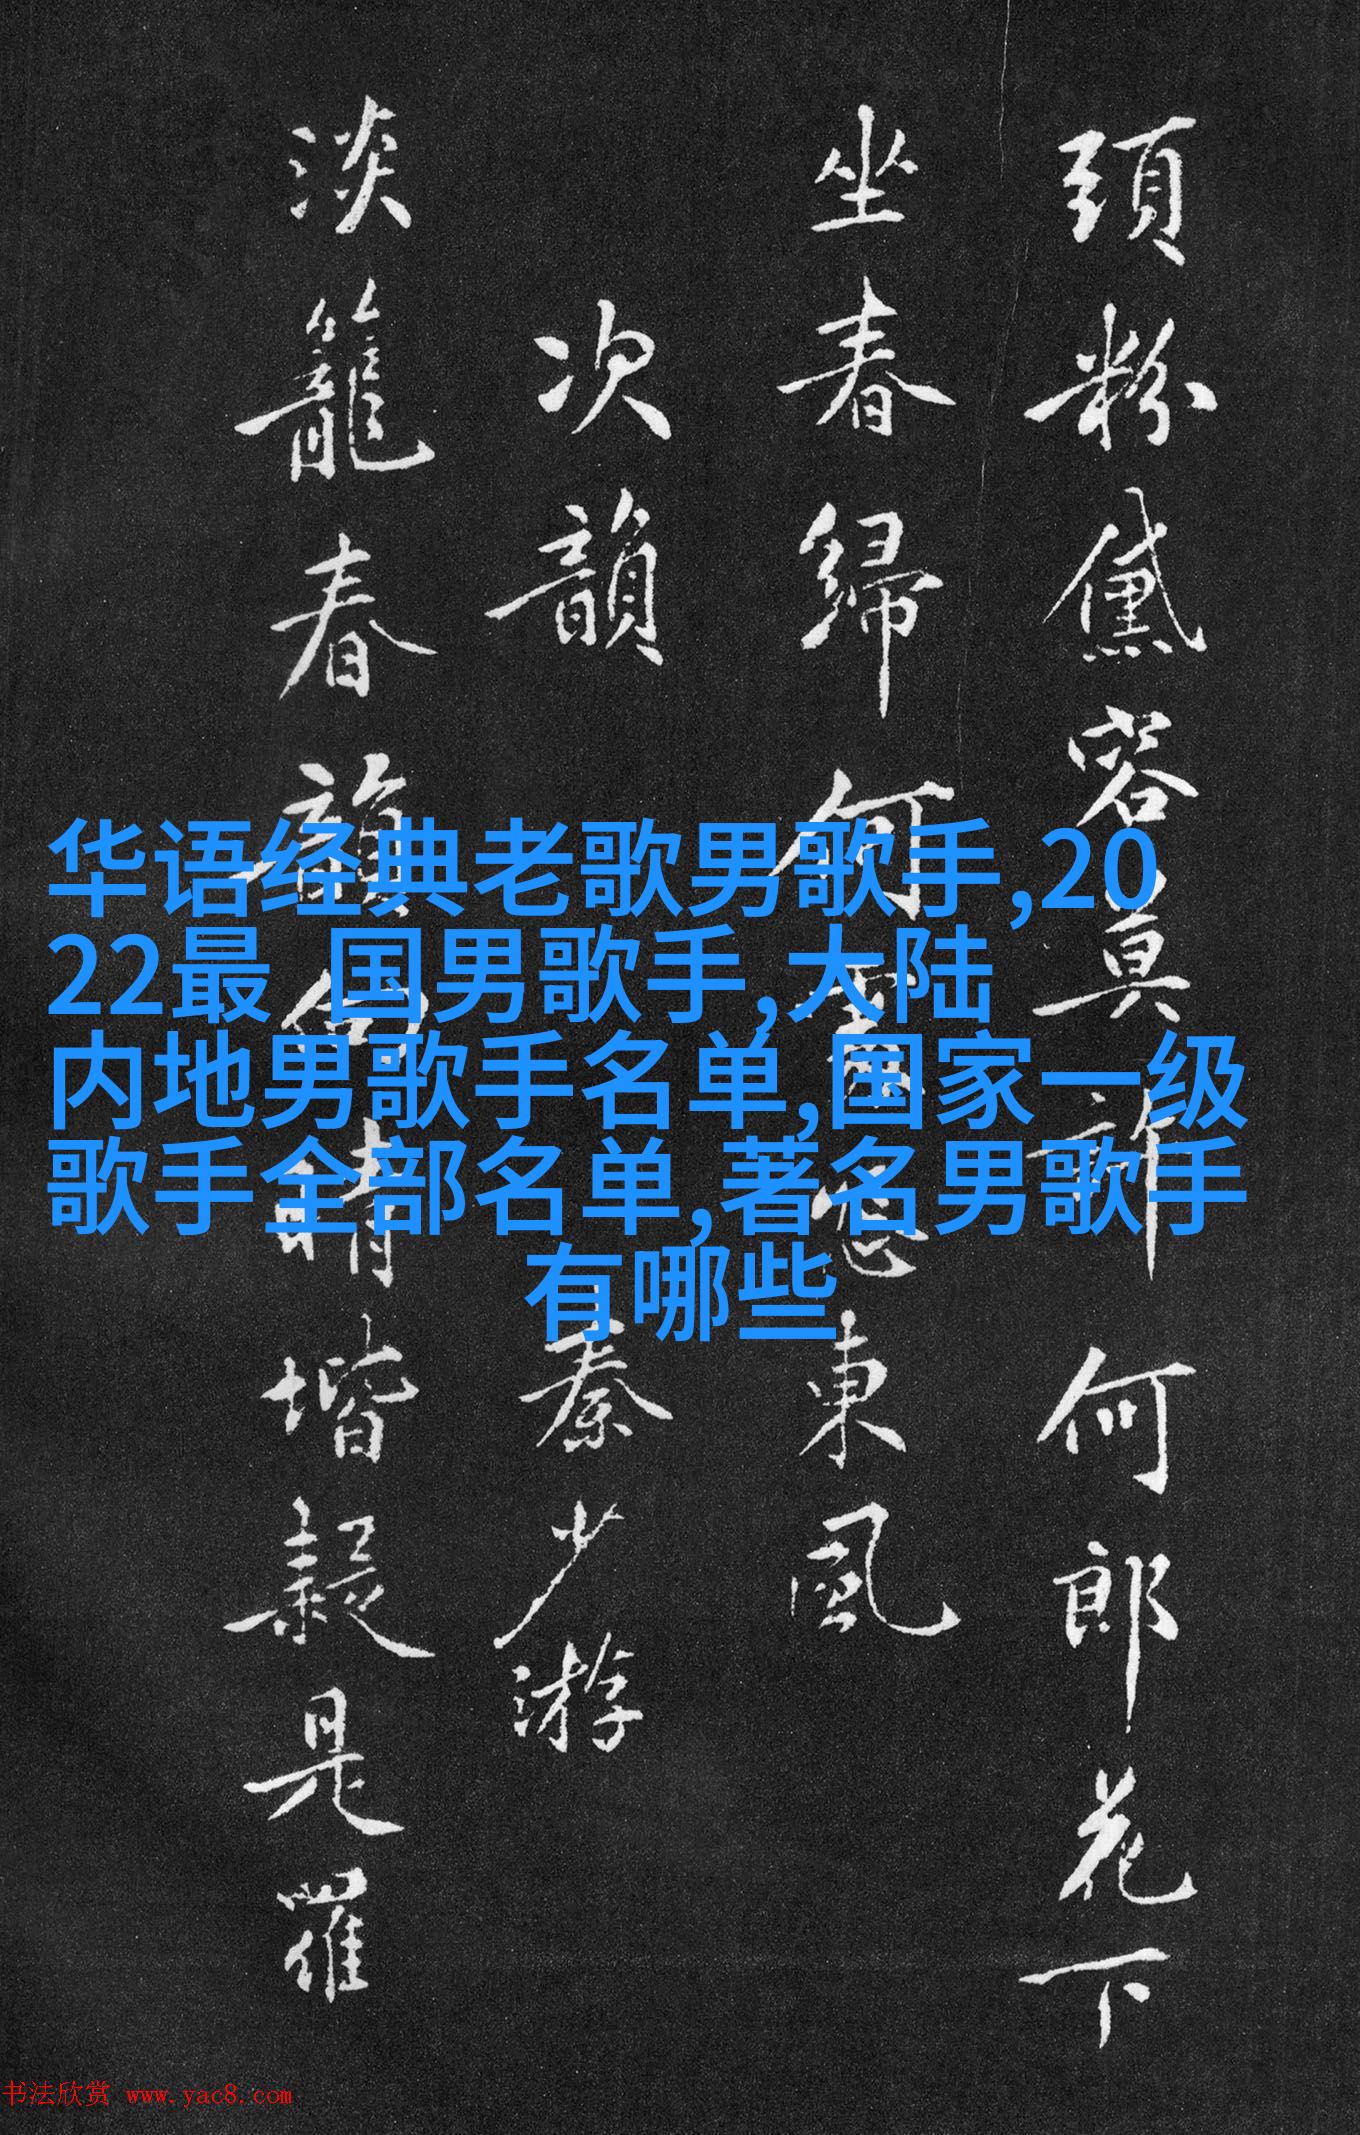 頭粉黛容許何郎花下
坐春歸何怨東風
次韻 秦少游
淡籠春韻向晴堦疑是羅
华语经典老歌男歌手,20
22最 国男歌手,大陆
内地男歌手名单,国家一级
歌手全部名单,著名男歌手
有哪些
书法欣赏 www.yac8.com